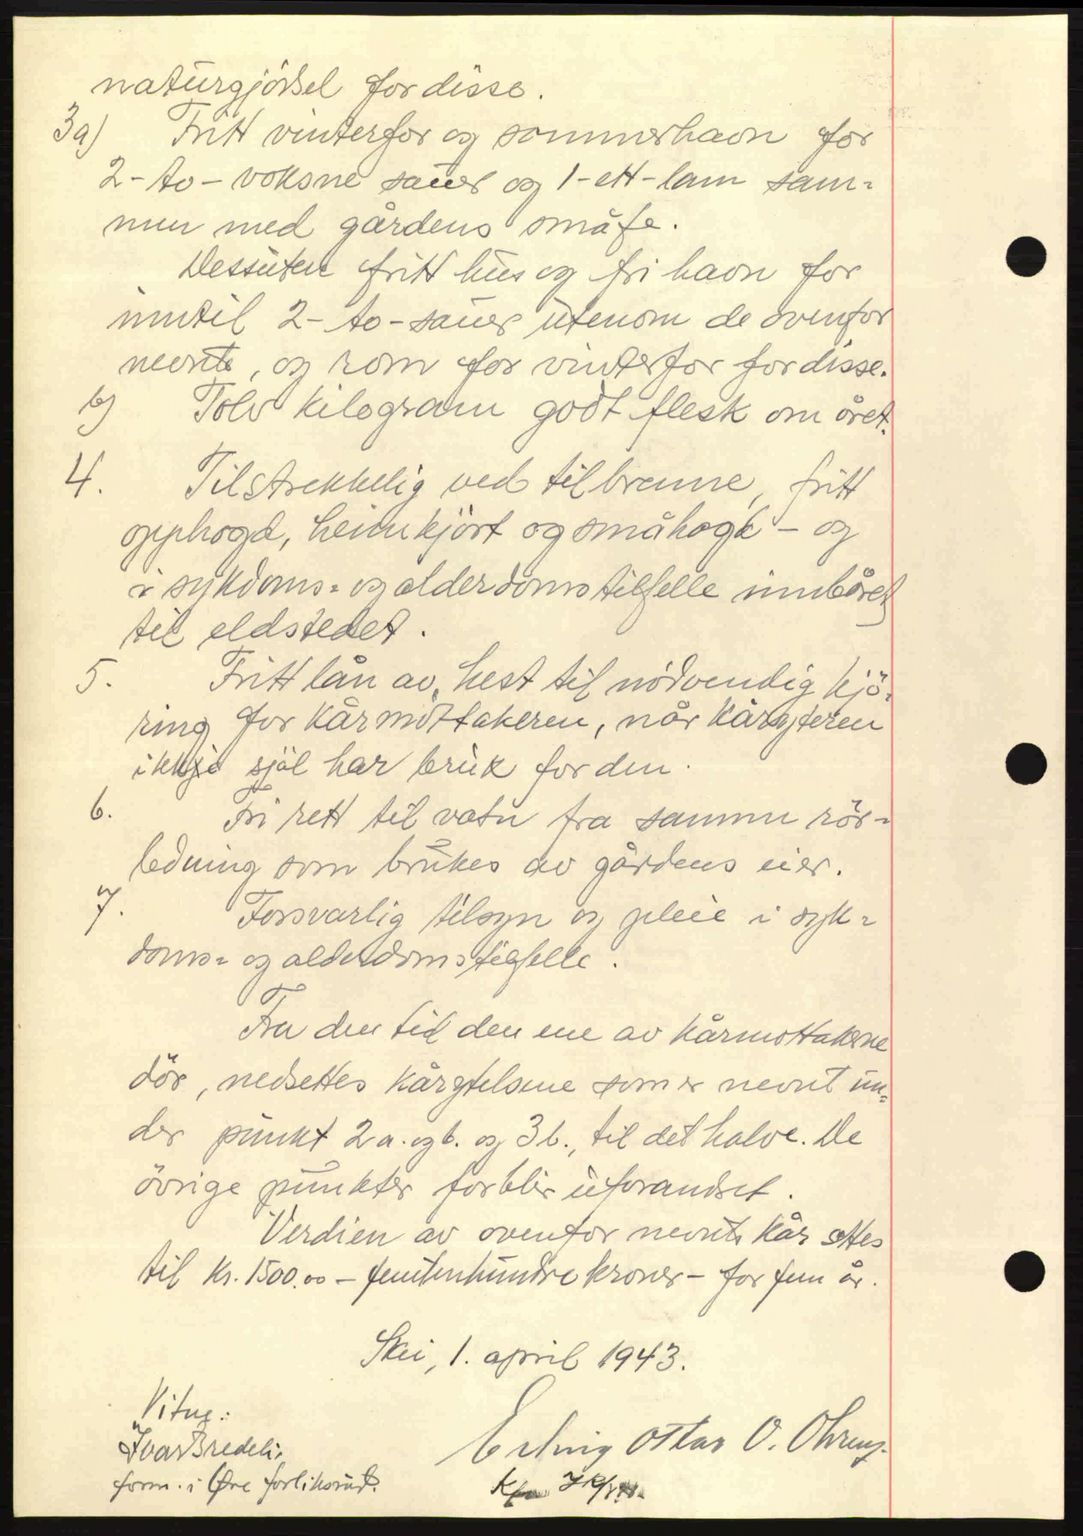 naturgjödsel for disse.
3a) Fritt vinterfor og sommerhavn for
2-to-voksne sauer og 1-ett-lam sam-
men med gårdens småfe.
Dessuten fritt hus og fri havn for
inntil 2-to-sauer utenom de ovenfor
nevnte, og rom for vinterfor for disse.
b) Tolv kilogram godt flesk om året.
4. Tilstrekkelig ved til brenne, fritt
opphogd, heimkjört og småhogd - og
i sykdoms- og alderdomstilfelle innbåret
til eldstedet.
5. Fritt lån av hest til nödvendig kjö-
ring for kårmottakeren, når kårgiveren
ikkje sjöl har bruk for den.
6. Fri rett til vatn fra samme rör-
ledning som brukes av gårdens eier.
7. Forsvarlig tilsyn og pleie i syk-
doms- og alderdomstilfelle.
Fra den tid den ene av kårmottakerne
dör, nedsettes kårytelsene som er nevnt un-
der punkt 2 a. og b. og 3 b., til det halve. De
övrige punkter forblir uforandret.
Verdien av ovenfor nevnte kår settes
til kr. 1500.00 - femtenhundre kroner - for fem år.
Skei, 1. april 1943.
Vitne:
Ivar Bredeli
form. i Øre forliksråd.
Erling Ottar O. Öhren